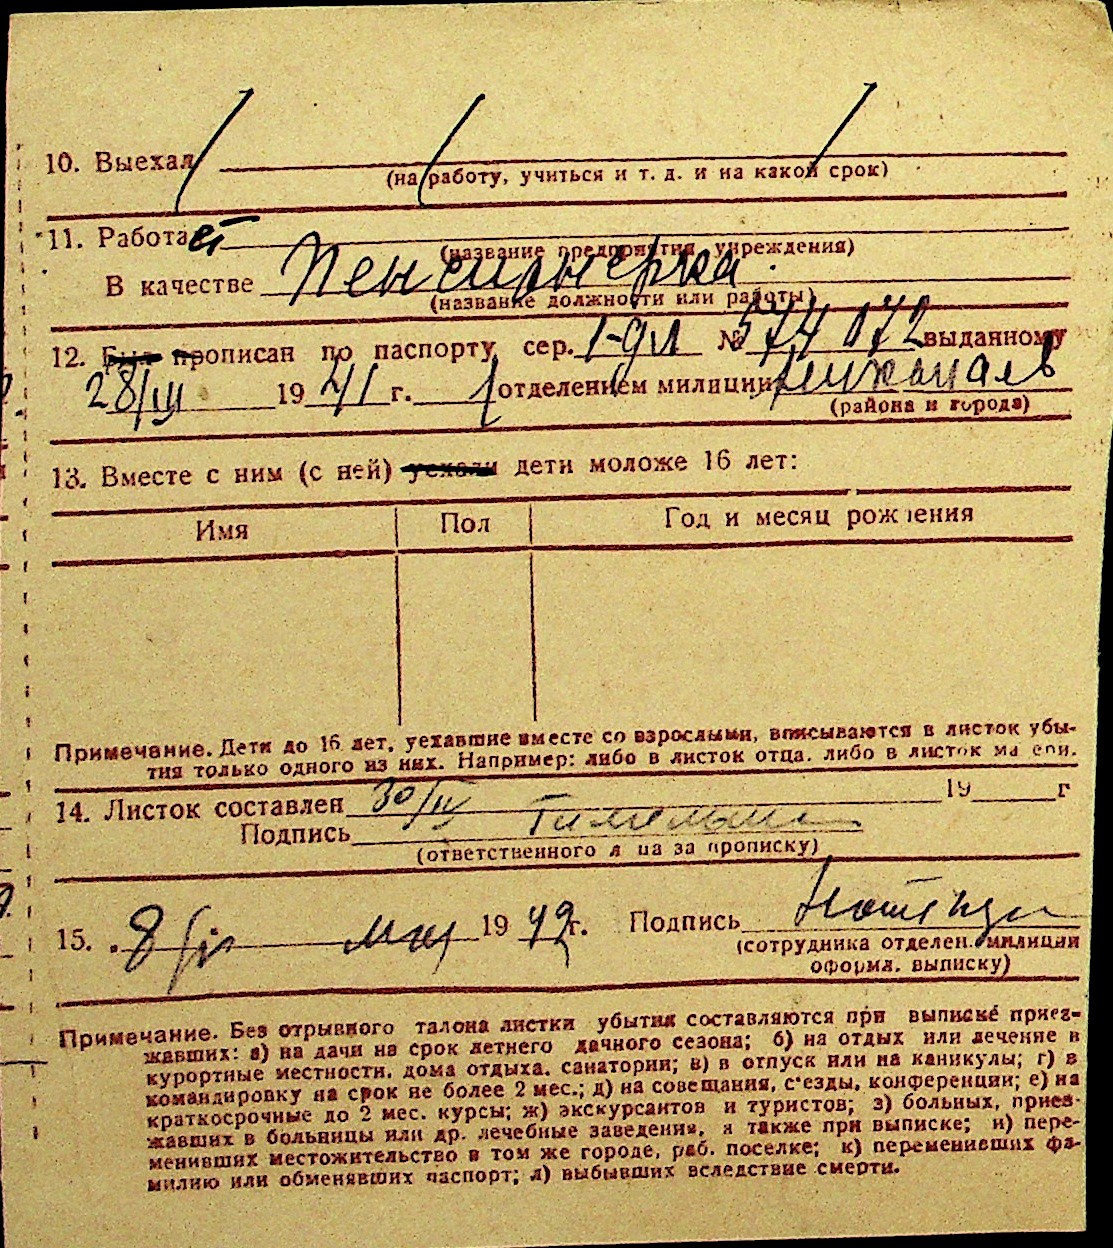 10. Выехал
(на работу, учиться и т. д. и на какой срок)
11. Работает
(название предприятия, учреждения)
В качестве Пенсионерка.
(название должности или работы)
12. Был прописан по паспорту сер. № 574072 выданному
28/III 1941 г. 1 отделением милиции
(района и города)
13. Вместе с ним (с ней) уехали дети моложе 16 лет:
Имя Пол Год и месяц рождения
Примечание. Дети до 16 лет, уехавшие вместе со взрослыми, вписываются в листок убы-
тия только одного из них. Например: либо в листок отца, либо в листок матери.
14. Листок составлен 30/IV 19 г
Подпись
(ответственного лица за прописку)
15. 8/V мая 1942 г. Подпись
(сотрудника отделен. милиции
оформл. выписку)
Примечание. Без отрывного талона листки убытия составляются при выписке приез-
жавших: а) на дачи на срок летнего дачного сезона; б) на отдых или лечение в
курортные местности, дома отдыха, санатории; в) в отпуск или на каникулы; г) в
командировку на срок не более 2 мес.; д) на совещания, с'езды, конференции; е) на
краткосрочные до 2 мес. курсы; ж) экскурсантов и туристов; з) больных, приез-
жавших в больницы или др. лечебные заведения, а также при выписке; и) пере-
менивших местожительство в том же городе, раб. поселке; к) переменивших фа-
милию или обменявших паспорт; л) выбывших вследствие смерти.